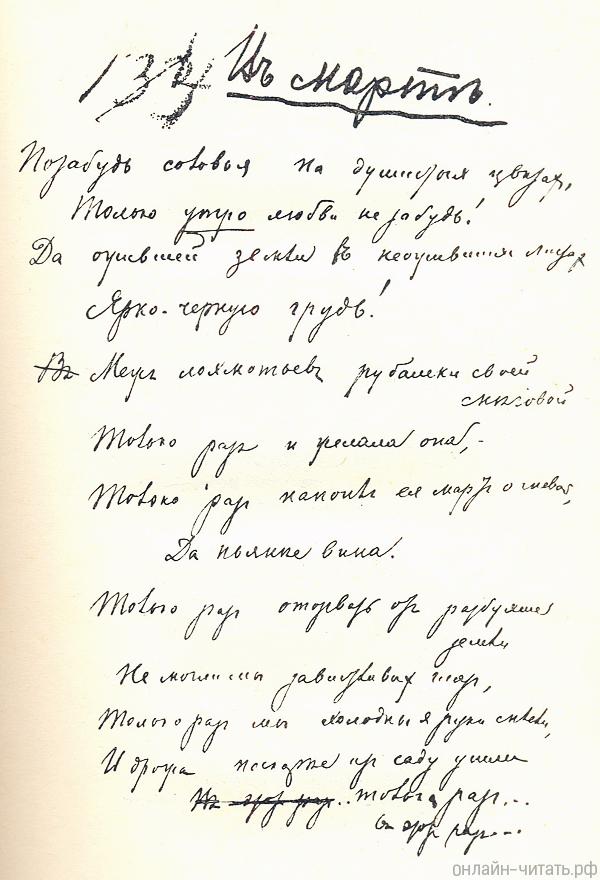 Въ мартѣ.
Позабудь соловья на душистыхъ цвѣтахъ,
Только утро любви не забудь!
Да ожившей земли въ неожившихъ листахъ
Ярко-черную грудь!
Межъ лохмотьевъ рубашки своей
снѣговой
Только разъ и желала она,-
Только разъ напоилъ ея мартъ огневой,
Да пьянѣе вина.
Только разъ оторвать отъ разбухшей
земли
Не могли мы завистливыхъ глазъ,
Только разъ мы холодныя руки сплели,
И дрожа поскорѣе изъ саду ушли
Только разъ...
въ этотъ разъ...
онлайн-читать.рф